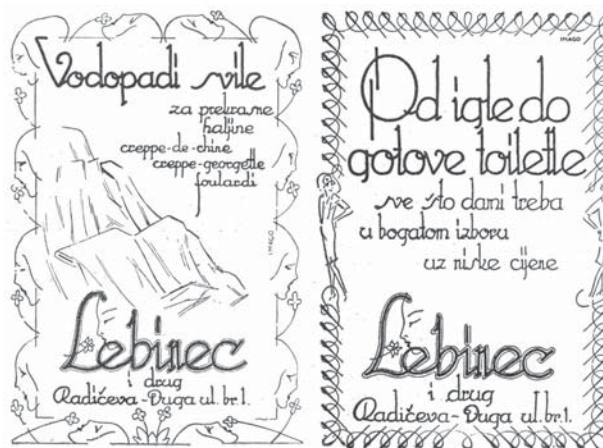 Vodopadi svile
za prekrasne
haljine
creppe-de-chine
creppe-georgette
foulardi
IMAGO
Lebinec
i drug
Radićeva-Duga ul. br. 1.
IMAGO
Od igle do
gotove toilette
sve što dami treba
u bogatom izboru
uz niske cijene
Lebinec
i drug
Radićeva-Duga ul. br. 1.